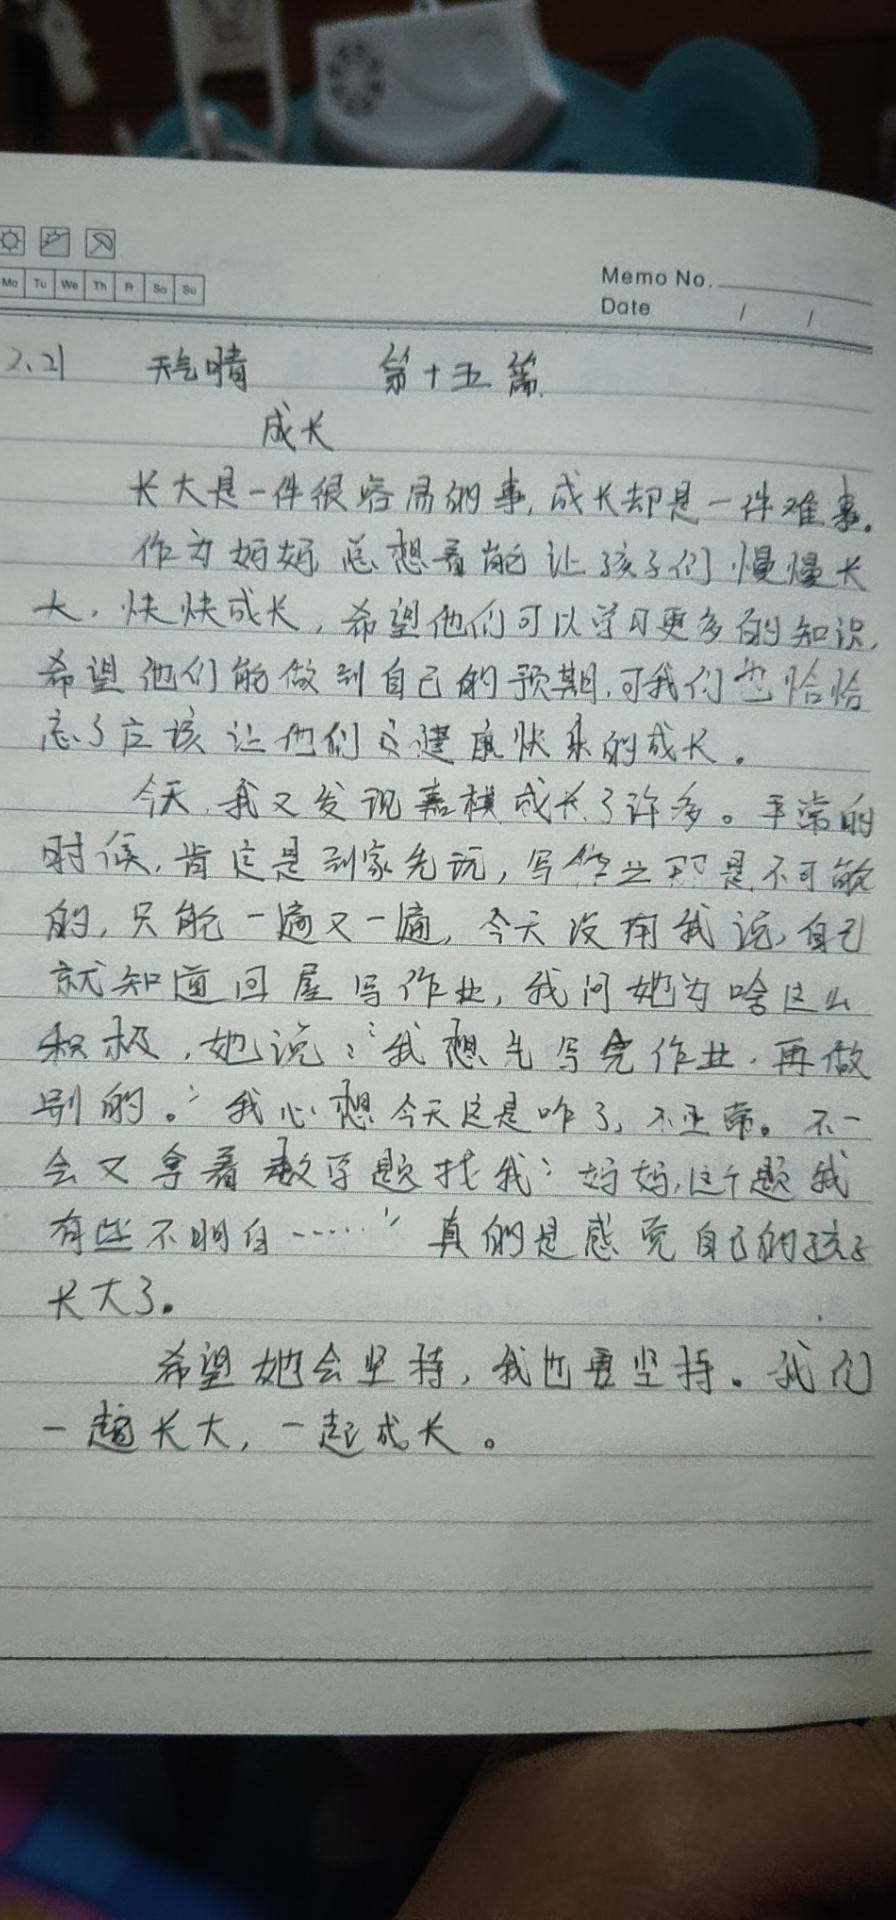 Mo Tu We Th Fr Sa Su
Memo No.
Date / /
2.21 天气晴 第十五篇
成长
长大是一件很容易的事,成长却是一件难事。
作为妈妈总想着能让孩子们慢慢长
大,快快成长,希望他们可以学习更多的知识,
希望他们能做到自己的预期,可我们也恰恰
忘了应该让他们健康快乐的成长。
今天,我又发现嘉棋成长了许多。平常的
时候,肯定是到家先玩,写作业那是不可能
的,只能一遍又一遍,今天没用我说,自己
就知道回屋写作业,我问她为啥这么
积极,她说:“我想先写完作业,再做
别的。”我心想今天这是咋了,不正常。不一
会又拿着数学题找我:妈妈,这个题我
有些不明白……” 真的是感觉自己的孩子
长大了。
希望她会坚持,我也要坚持。我们
一起长大,一起成长。